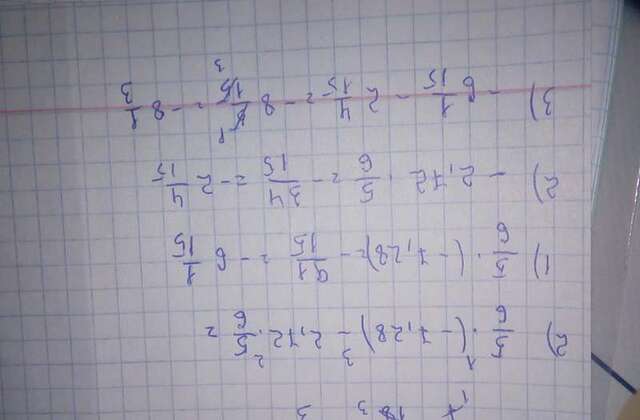 2) 5/6 · (−7,28) − 2,72 · 5/6 =
1) 5/6 · (−7,28) = −91/15 = −6 1/15
2) −2,72 · 5/6 = −34/15 = −2 4/15
3) −6 1/15 − 2 4/15 = −8 5/15 = −8 1/3